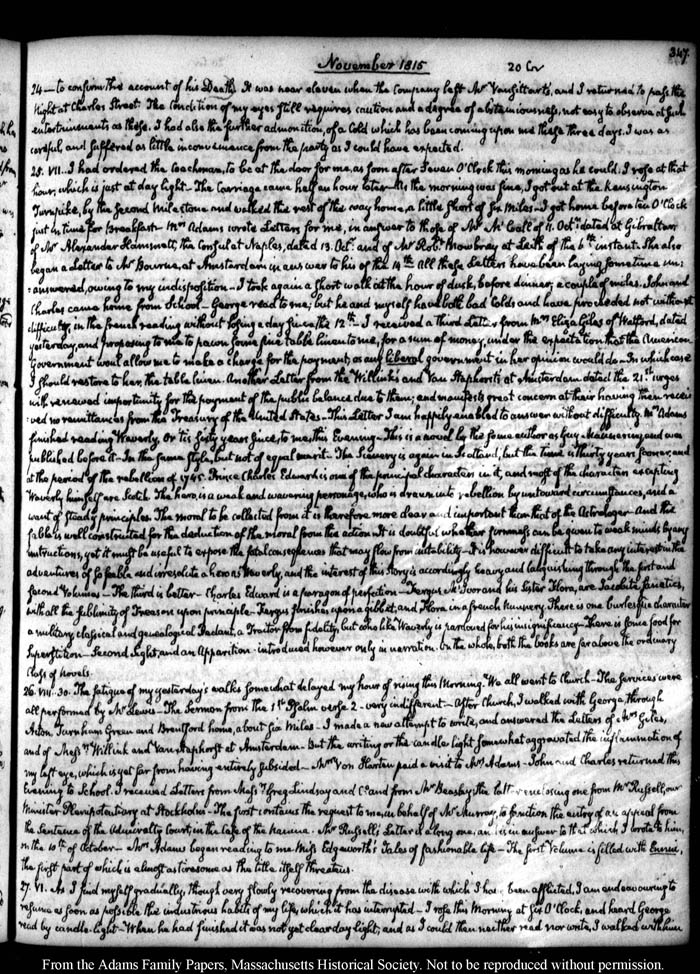 347.
November 1815
20 Cr
24 — to confirm the account of his Death. It was near eleven when the Company left Mr Vansittart's, and I returned to pass the
Night at Charles Street. The Condition of my eyes still requires caution and a degree of abstemiousness, not easy to observe at such
entertainments as these. I had also the further admonition, of a Cold which has been coming upon me these three days. I was as
careful and suffered as little inconvenience from the party as I could have expected.
25. VII. I had ordered the Coachman, to be at the door for me, as soon after Seven O'Clock this morning as he could. I rose at that
hour, which is just at day light — The Carriage came half an hour later — As the morning was fine, I got out at the Kensington
Turnpike, by the second Milestone and walked the rest of the way home, a little short of six Miles — I got home before ten O'Clock
just in time for Breakfast. Mrs Adams wrote Letters for me, in answer to those of Mr McCall of 11. Octr dated at Gibraltar
of Mr Alexander Hammett, the Consul at Naples, dated 13. Octr and of Mr Robt Mowbray at Leith of the 6th instant. She also
began a Letter to Mr Bourne, at Amsterdam in answer to his of the 14th All these Letters have been laying sometime un:
:answered, owing to my indisposition — I took again a short walk at the hour of dusk, before dinner; a couple of miles. John and
Charles came home from School — George read to me; but he and myself have both bad Colds and have proceeded not without
difficulty, in the French reading without losing a day since the 12th — I received a third Letter from Mrs Eliza Giles of Watford, dated
yesterday, and proposing to me to pawn some fine table linen to me, for a sum of money, under the expectation that the American
Government would allow me to make a charge for the payment; as any liberal government in her opinion would do — In which case
I should restore to her, the table linen. Another Letter from the Willink's and Van Staphorsts at Amsterdam dated the 21.st urges
with renewed importunity for the payment of the public balance due to them; and manifests great concern at their having then recei
:ved no remittances from the Treasury of the United States — This Letter I am happily enabled to answer without difficulty. Mrs Adams
finished reading Waverly, Or tis Sixty years since, to me this Evening — This is a novel by the same author as Guy Mannering and was
published before it — In the same style, but not of equal merit — The Scenery is again in Scotland, but the time is thirty years sooner, and
at the period of the rebellion of 1745. Prince Charles Edward is one of the principal characters in it, and most of the characters excepting
Waverly himself are Scotch. The hero, is a weak and wavering personage, who is drawn into rebellion by untoward circumstances, and a
want of steady principles. The moral to be collected from it is therefore more clear and important than that of the Astrologer — And the
fable is well constructed for the deduction of the moral from the action. It is doubtful whether firmness can be given to weak minds by any
instructions, yet it must be useful to expose the fatal consequences that may flow from instability — It is however difficult to take any interest in the
adventures of so feable and irresolute a hero as Waverly, and the interest of this story is accordingly heavy and languishing through the first and
second Volumes — The third is better — Charles Edward is a paragon of perfection — Fergus McIvor and his Sister Flora, are Jacobite fanatics,
with all the sublimity of Treason upon principle. Fergus finishes upon a gibbet, and Flora in a French Nunnery. There is one burlesque character
a military classical and genealogical Pedant, a Traitor from fidelity, but who like Waverly is pardoned for his insignificancy — There is some food for
Superstition — Second Sight, and an Apparition — introduced however only in narration. On the whole, both the books are far above the ordinary
Class of novels.
26. VIII. 30. The fatigue of my yesterday's walks somewhat delayed my hour of rising this Morning. We all went to Church — The Services were
all performed by Mr Lewis — The Sermon from the 1st Psalm verse 2 — very indifferent — After Church, I walked with George, through
Acton, Turnham Green and Brentford home, about six Miles — I made a new attempt to write, and answered the Letters of Mrs Giles,
and of Messrs Willink and Van Staphorst at Amsterdam — But the writing or the candle light somewhat aggravated the inflammation of
my left eye, which is yet far from having entirely subsided — Mrs Von Harten paid a visit to Mrs Adams — John and Charles returned this
Evening to School. I received Letters from Messrs Greg Lindsay and Co and from Mr Beasley; the latter enclosing one from Mr Russell, our
Minister Plenipotentiary at Stockholm — The first contains the request to me, in behalf of Mr Murray, to sanction the entry of an appeal from
the Sentence of the Admiralty Court, in the Case of the — Mr Russell's Letter is a long one, and is in answer to that which I wrote to him,
on the 10th of October — Mrs Adams began reading to me Miss Edgeworth's Tales of fashionable life — The first Volume is filled with Ennui,
the first part of which is almost as tiresome as the title itself threatens.
27. VI. As I find myself gradually, though very slowly recovering from the disease with which I have been afflicted, I am endeavouring to
resume as soon as possible the industrious habits of my life, which it has interrupted — I rose this Morning at six O'Clock, and heard George
read by candle-light — When he had finished it was not yet clear day light, and as I could then neither read nor write, I walked with him
From the Adams Family Papers, Massachusetts Historical Society. Not to be reproduced without permission.